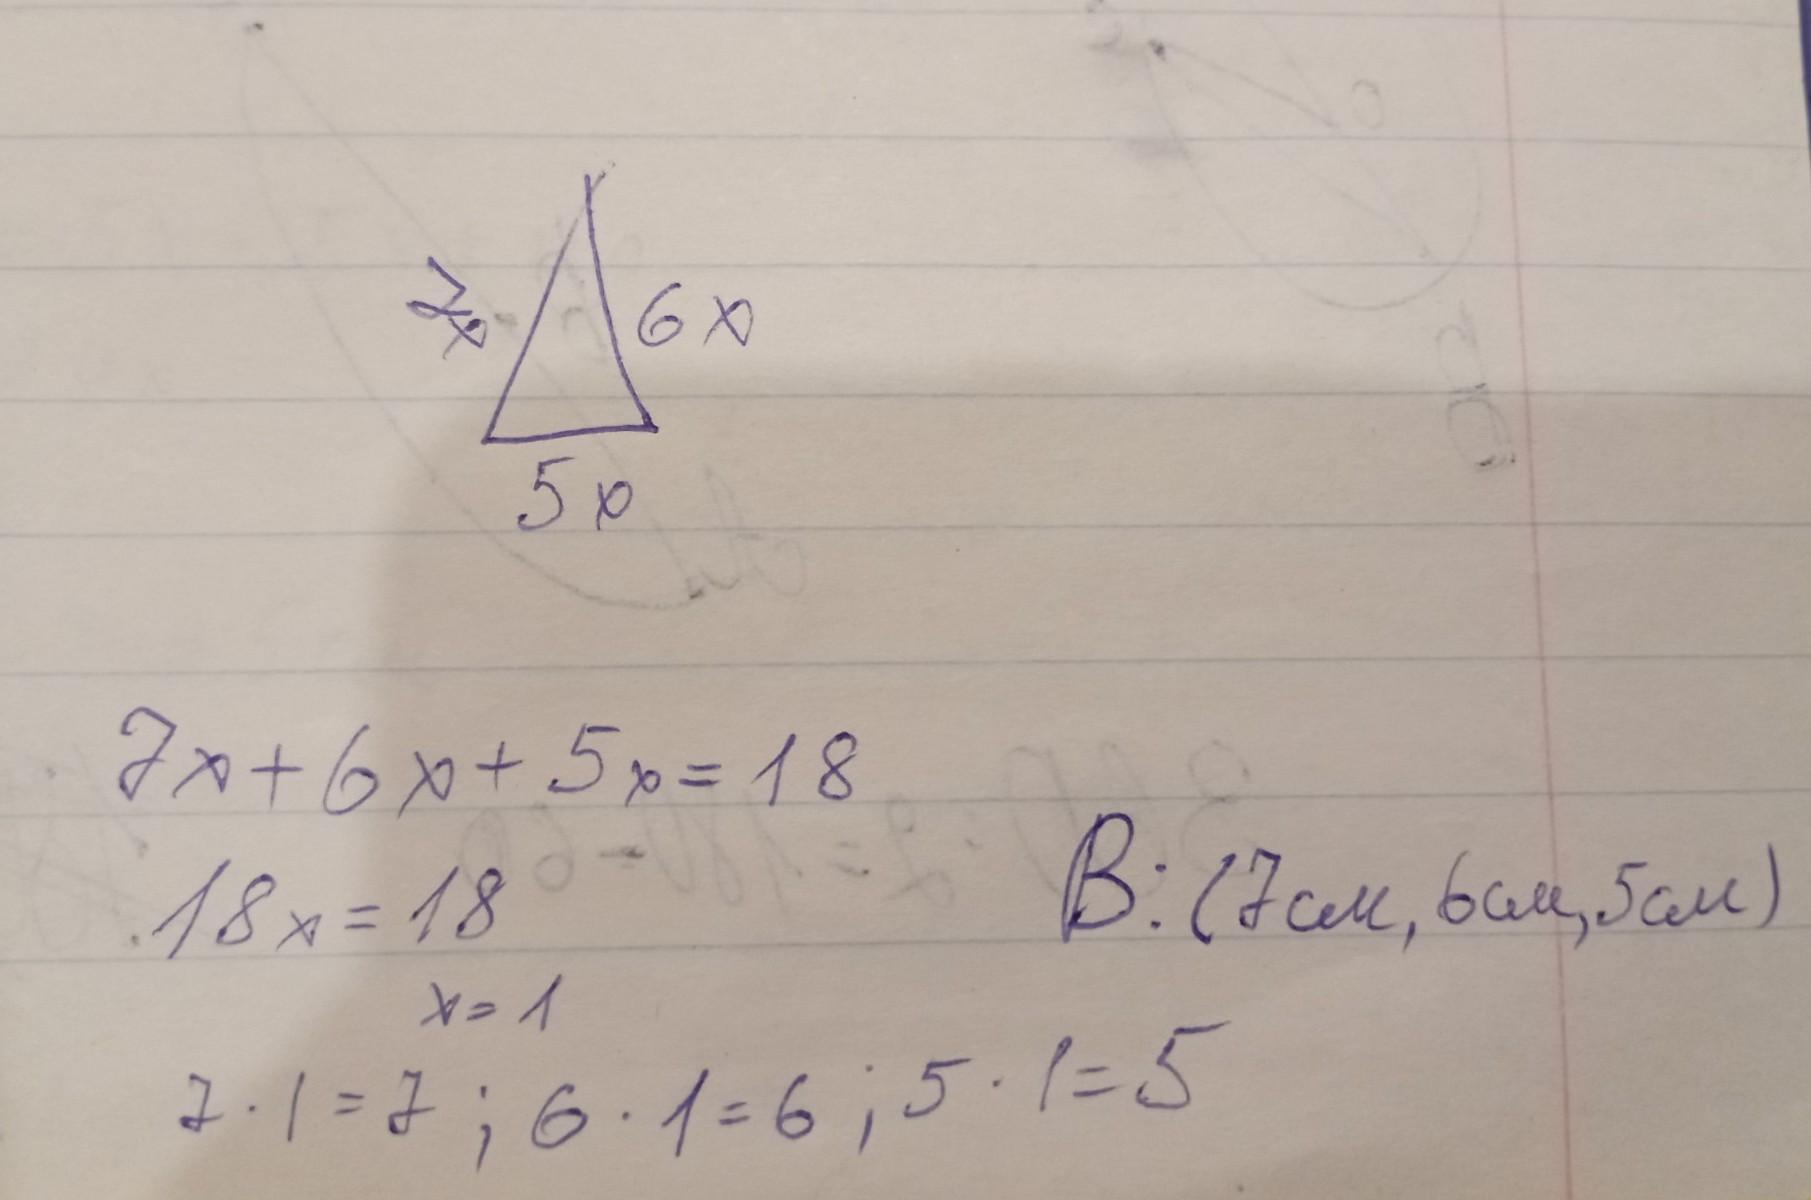 7x 6x
5x
7x + 6x + 5x = 18
18x = 18
В: (7см, 6см, 5см)
x = 1
7 · 1 = 7 ; 6 · 1 = 6 ; 5 · 1 = 5